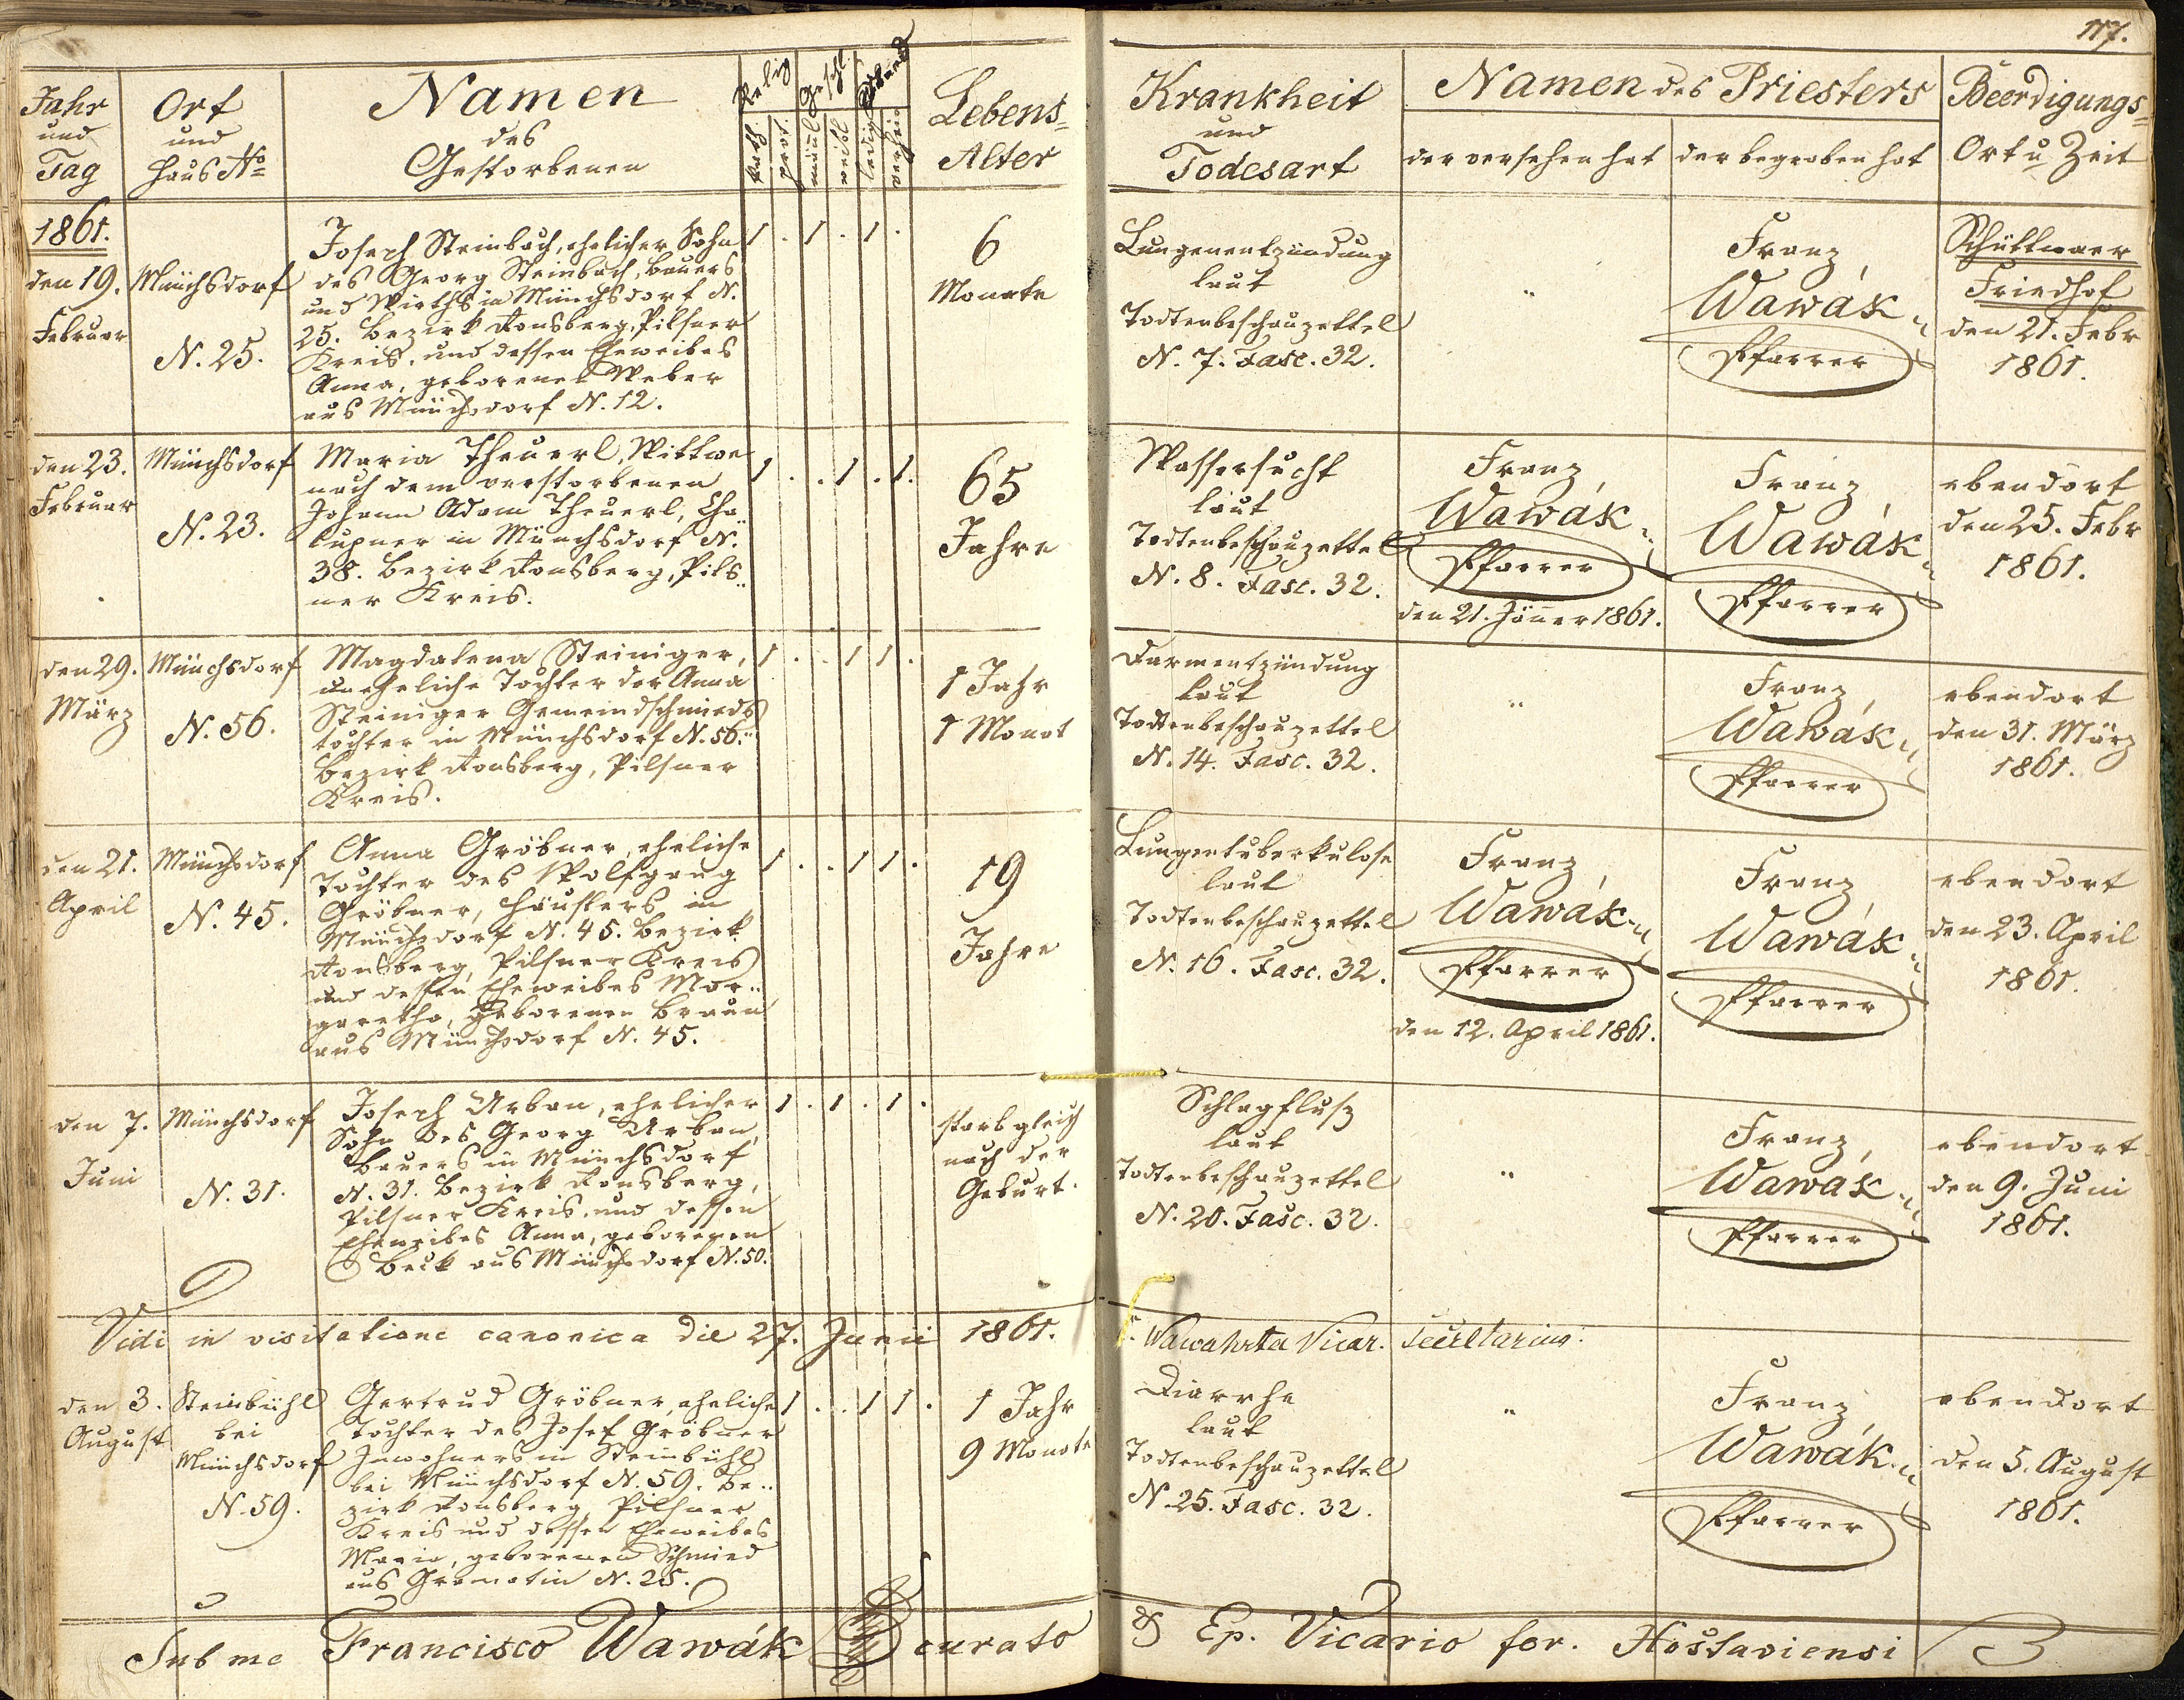 117.
Jahr
und
Tag
Ort
und
Haus No
Namen
des
Gestorbenen
Relig
Geschl.
Stand
kath.
prot.
mänl
weibl
ledig
verheir
Lebens=
Alter
Krankheit
und
Todesart
Namen des Priesters
der versehen hat
der begraben hat
Beerdigungs=
Ort u Zeit
1861.
den 19.
Februar
Münchsdorf
N. 25.
Joseph Steinbach, ehelicher Sohn
des Georg Steinbach, Bauers
und Wirths in Münchsdorf N.
25. Bezirk Ronsberg, Pilsner
Kreis, und dessen Eheweibes
Anna, geborenen Weber
aus Münchsdorf N. 12.
1 . 1 . 1 .
6
Monate
Lungenentzündung
laut
Todtenbeschauzettel
N. 7. Fasc. 32.
"
Franz
Wawák
Pfarrer
Schüttwaer
Friedhof
den 21. Febr
1861.
den 23.
Februar
Münchsdorf
N. 23.
Maria Theuerl, Wittwe
nach dem verstorbenen
Johann Adam Theuerl, Cha..
lupner in Münchsdorf N.
38. Bezirk Ronsberg, Pils..
ner Kreis.
1 . . 1 . 1.
65
Jahre
Wassersucht
laut
Todtenbeschauzettel
N. 8. Fasc. 32.
Franz
Wawák
Pfarrer
den 21. Jänner 1861.
Franz
Wawák
Pfarrer
ebendort
den 25. Febr
1861.
den 29.
März
Münchsdorf
N. 56.
Magdalena Steiniger,
uneheliche Tochter der Anna
Steiniger Gemeindschmieds
tochter in Münchsdorf N. 56.
Bezirk Ronsberg, Pilsner
Kreis.
1 . . 1 1 .
1 Jahr
1 Monat
Darmentzündung
laut
Todtenbeschauzettel
N. 14. Fasc. 32.
"
Franz
Wawák
Pfarrer
ebendort
den 31. März
1861.
den 21.
April
Münchsdorf
N. 45.
Anna Gröbner, eheliche
Tochter des Wolfgang
Gröbner, Häuslers in
Münchsdorf N. 45. Bezirk
Ronsberg, Pilsner Kreis
und dessen Eheweibes Mar..
garetha, geborenen Braun
aus Münchsdorf N. 45.
1 . . 1 1 .
19
Jahre
Lungentuberkulose
laut
Todtenbeschauzettel
N. 16. Fasc. 32.
Franz
Wawák
Pfarrer
den 12. April 1861.
Franz
Wawák
Pfarrer
ebendort
den 23. April
1861.
den 7.
Juni
Münchsdorf
N. 31.
Joseph Urban, ehelicher
Sohn des Georg Urban,
Bauers in Münchsdorf
N. 31. Bezirk Ronsberg,
Pilsner Kreis, und dessen
Eheweibes Anna, geborenen
Beck aus Münchsdorf N. 50.
1 . 1 . 1 .
starb gleich
nach der
Geburt.
Schlagflusz
laut
Todtenbeschauzettel
N. 20. Fasc. 32.
"
Franz
Wawák
Pfarrer
ebendort
den 9. Juni
1861.
Vidi in visitatione canonica die 27. Junii 1861.
Vicar. Secretarius
den 3.
August
Steinbühl
bei
Münchsdorf
N. 59.
Gertrud Gröbner, eheliche
Tochter des Josef Gröbner
Inwohners in Steinbühl
bei Münchsdorf N. 59. Be..
zirk Ronsberg, Pilsner
Kreis und dessen Eheweibes
Maria, geborenen Schmied
aus Gramatin N. 25.
1 . . 1 1 .
1 Jahr
9 Monate
Diarrhe
laut
Todtenbeschauzettel
N. 25. Fasc. 32.
"
Franz
Wawák
Pfarrer
ebendort
den 5. August
1861.
Sub me Francisco Wawák curato & Ep. Vicario for. Hostaviensi